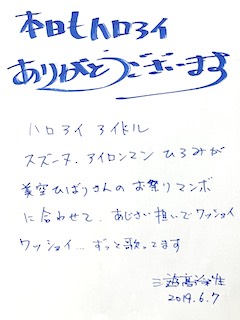 本日もハロアイ
ありがとうございます
ハロアイ アイドル
スズーヌ、アイロンマン ひろみが
美空ひばりさんの お祭りマンボ
に合わせて、あじさい担いでワッショイ
ワッショイ… ずっと歌ってます
2019.6.7